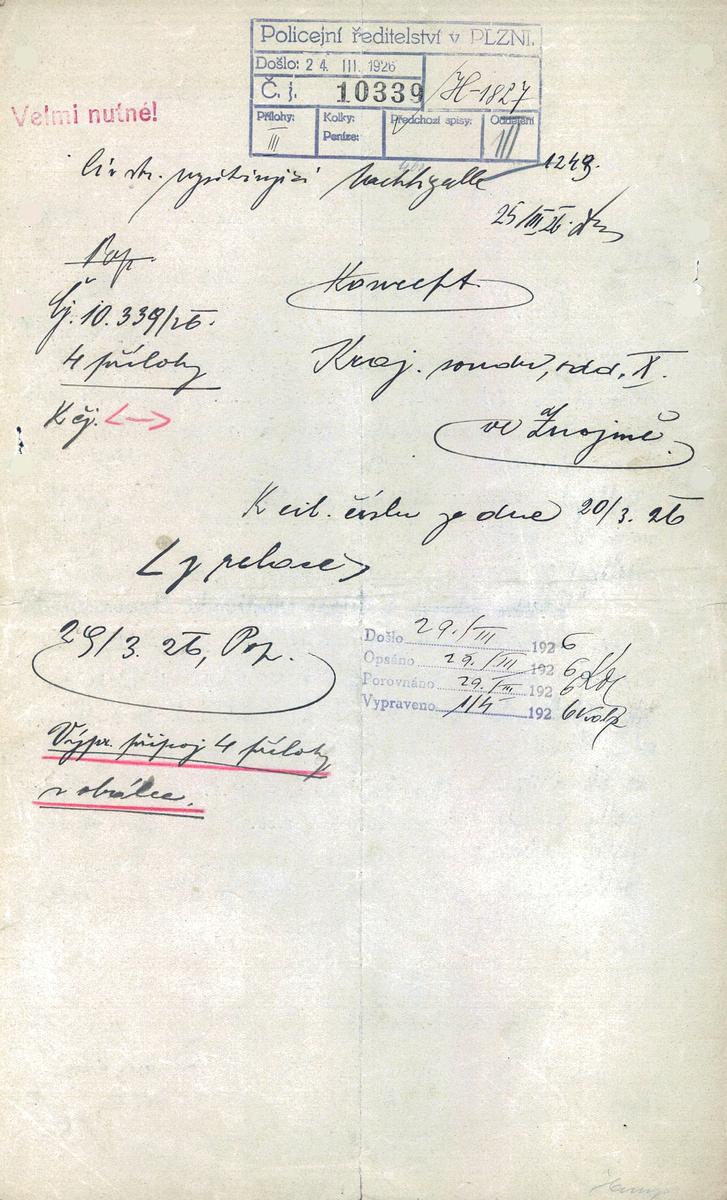 Policejní ředitelství v PLZNI.
Došlo: 24 III. 1926
Č. j. 10339 H-1827
Přílohy: III Kolky: Peníze: Předchozí spisy: Oddělení III
Velmi nutné!
1249.
25/III 26.
Pop.
Koncept
Čj. 10.339/26.
4 přílohy
Kraj. soudu, odd. X.
K čj. <—>
ve Znojmě.
K cit. číslu ze dne 20/3. 26
29/3. 26, Pop.
Došlo 29./III 1926
Opsáno 29./III 1926
Porovnáno 29./III 1926
Vypraveno 1/4 1926
Výpr. připoj 4 přílohy
v obálce.